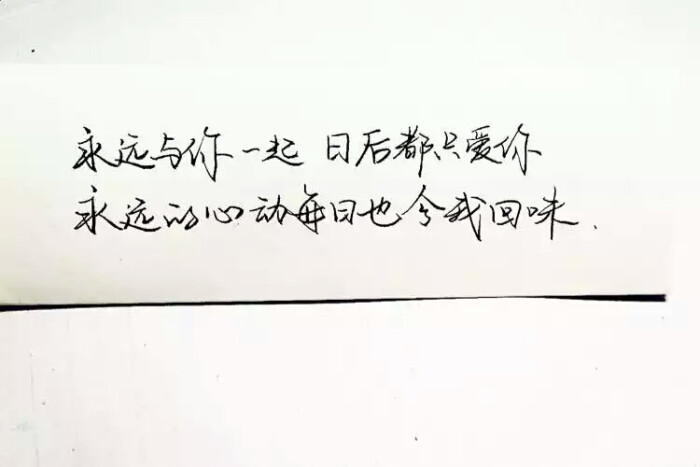 永远与你一起 日后都只爱你
永远的心动每日也令我回味.